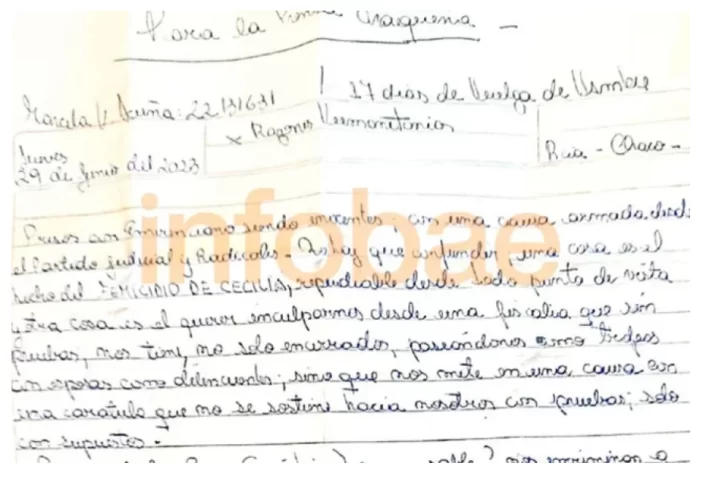 Para la Prensa Chaqueña -
Marcela V. Acuña: 22131631
! 17 dias de Huelga de Hambre
x Razones Humanitarias
Jueves
29 de Junio del 2023
Rcia - Chaco -
infobae
Presos con Emerenciano siendo inocentes - con una causa armada desde
el Partido judicial y Radicales - No hay que confundir, una cosa es el
hecho del FEMICIDIO DE CECILIA, repudiable desde todo punto de vista
y otra cosa es el querer inculparnos desde una fiscalia que sin
pruebas, nos tiene, no solo encerrados, paseándonos como trofeos
con esposas como delincuentes, sino que nos mete en una causa con
una caratula que no se sostiene hacia nosotros con pruebas, solo
con supuestos -
? nos incriminan a